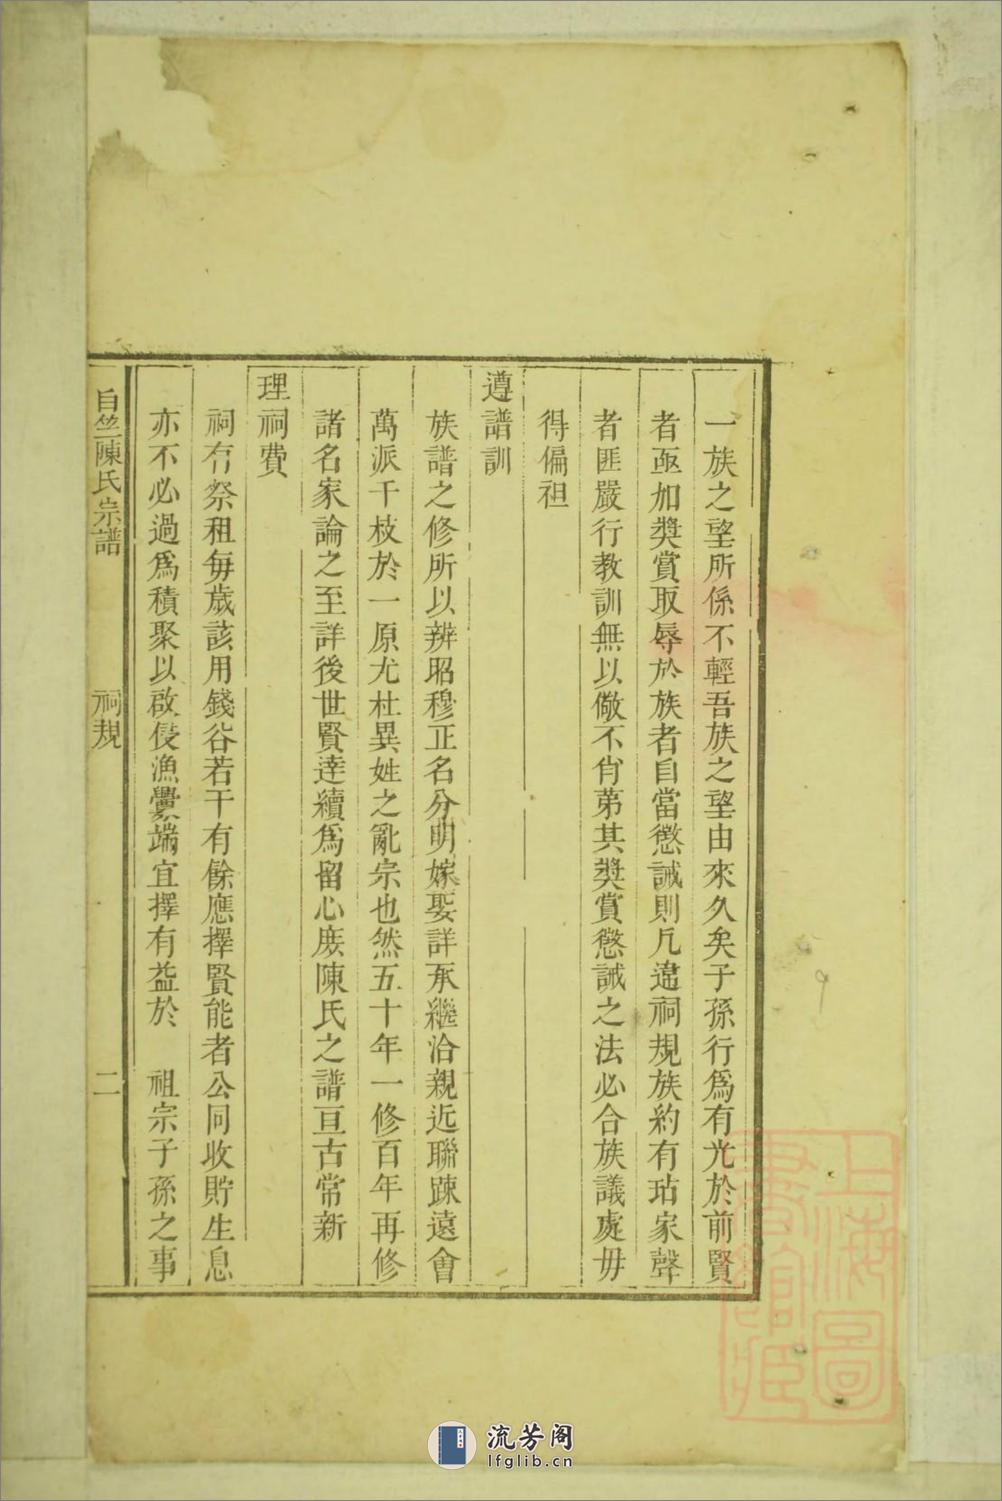 一族之望所係不輕吾族之望由來久矣子孫行爲有光於前賢
者亟加奬賞取辱於族者自當懲誡則凡違祠規族約有玷家聲
者匪嚴行教訓無以儆不肖第其奬賞懲誡之法必合族議處毋
得偏袒
遵譜訓
族譜之修所以辨昭穆正名分明嫁娶詳承繼洽親近聯踈遠會
萬派千枝於一原尤杜異姓之亂宗也然五十年一修百年再修
諸名家論之至詳後世賢達續爲留心庶陳氏之譜亘古常新
理祠費
祠冇祭租每歲該用錢谷若干有餘應擇賢能者公同收貯生息
亦不必過爲積聚以啟侵漁釁端宜擇有益於　祖宗子孫之事
自竺陳氏宗譜　祠規　二
上海圖
書館藏
流芳阁
lfglib.cn